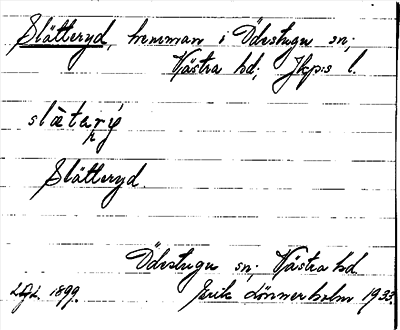 Slätteryd, hemman i Ödestugu sn;
Västra hd; Jkp:s l.
slätarý
Slätteryd.
Ödestugu sn; Västra hd
1899. Erik Lönnerholm 1933.